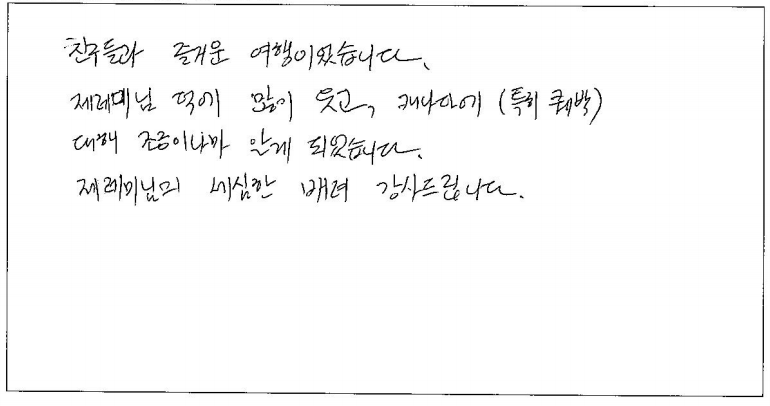 친구들과 즐거운 여행이었습니다.
제레미님 덕에 많이 웃고, 캐나다에 (특히 퀘백)
대해 조금이나마 알게 되었습니다.
제레미님의 세심한 배려 감사드립니다.